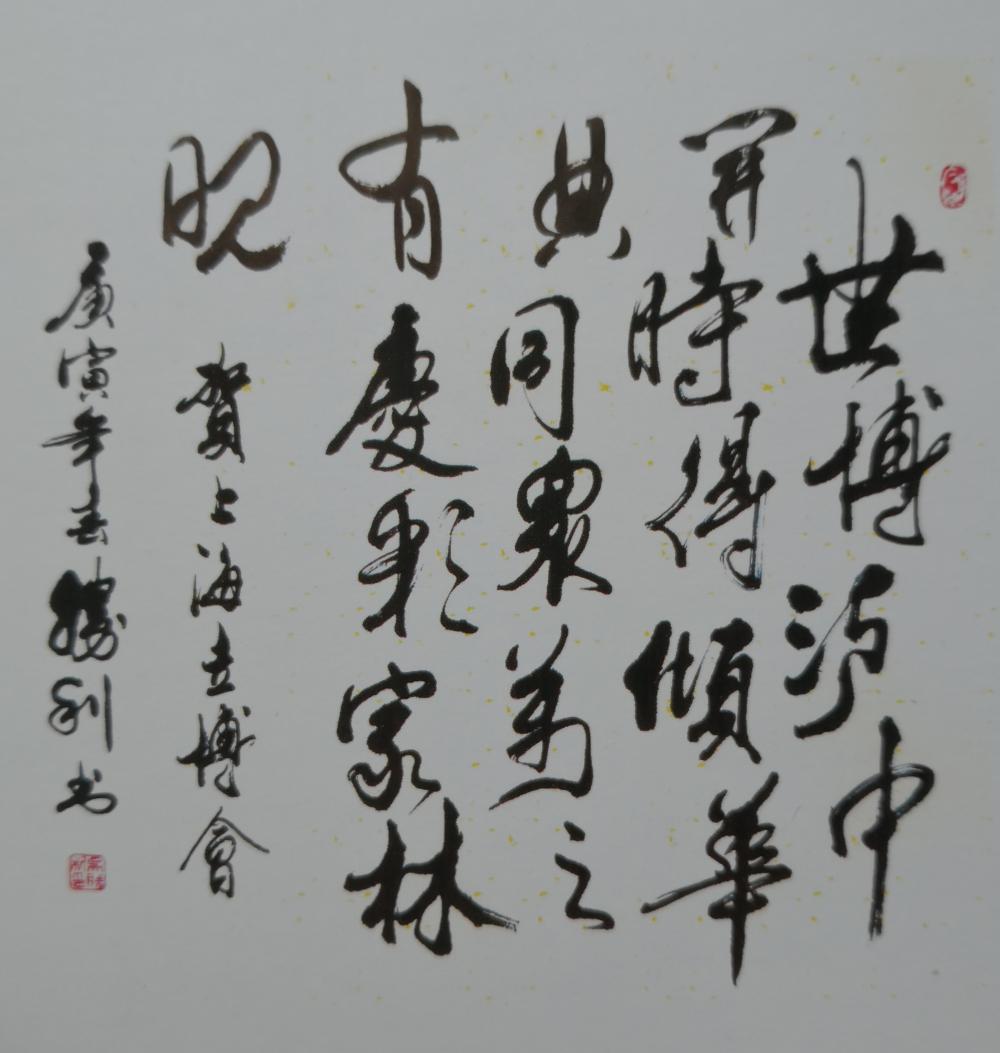 世博沪中
開時得傾華
典同眾萬之
有慶彩家林
賀上海世博會
庚寅年春勝利书